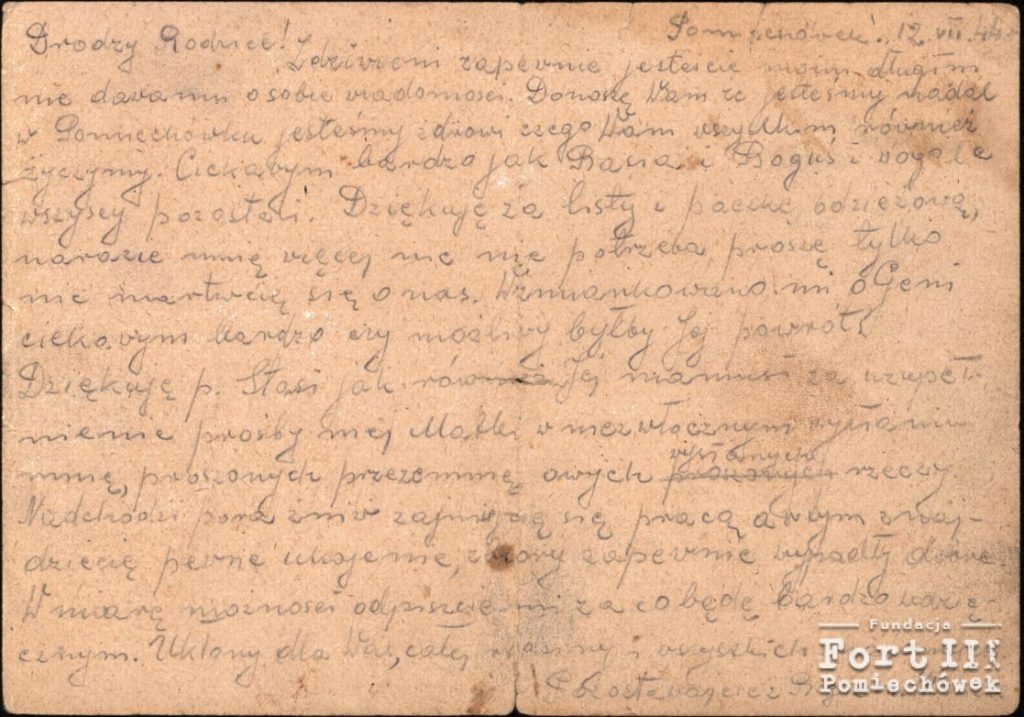 Pomiechówek. 12. VII. 44 r.
Drodzy Rodzice!
Zdziwieni zapewnie jesteście moim długim
nie dawaniu o sobie wiadomości. Donoszę Wam że jesteśmy nadal
w Pomiechówku jesteśmy zdrowi czego Wam wszystkim również
życzymy. Ciekawym bardzo jak Basia i Boguś i wogóle
wszyscy pozostali. Dziękuję za listy i paczkę odzieżową,
narazie mnię więcej nic nie potrzeba proszę tylko
nie martwcię się o nas. Wzmiankowano mi o Geni
ciekawym bardzo czy możliwy byłby Jej powrót?
Dziękuję p. Stasi jak również Jej mamusi za uzupeł-
nienie prośby mej Matki w niezwłocznym wysłaniu
mnię, proszonych przezemnię owych wysłanych rzeczy
Nadchodzi pora żniw zajmiecię się pracą a w tym znaj-
dziecię pewne ukojenie, zbiory zapewnie wypadły dobre.
W miarę możności odpiszcię mi za co będę bardzo wdzię-
cznym. Ukłony dla Was, całej rodziny i wszystkich
Pozostawający z
Fundacja
Fort III
Pomiechówek